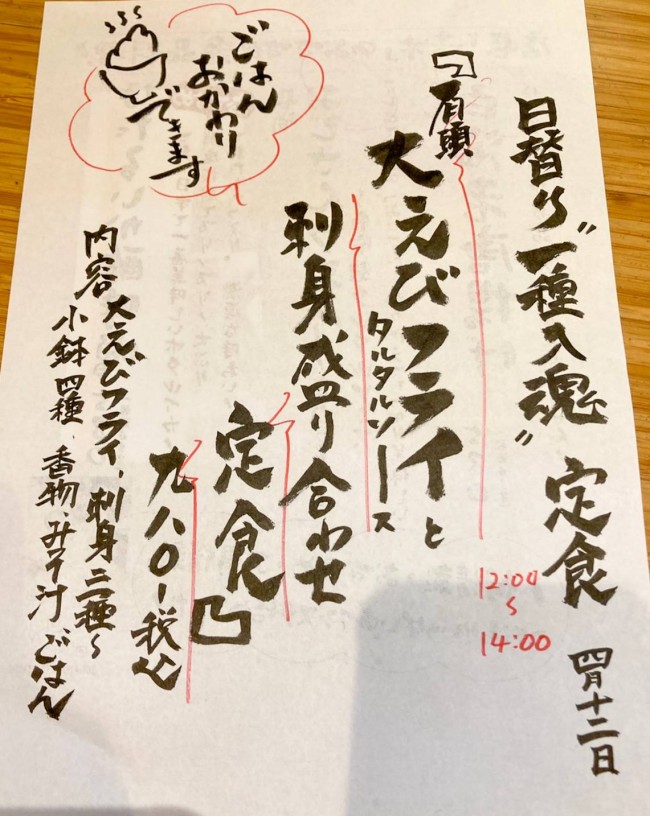 日替り"一種入魂"定食 四月十二日
12:00
〜
14:00
「有頭
大えびフライと
タルタルソース
刺身盛り合わせ
定食」
九八〇ー税込
内容 大えびフライ、刺身三種〜
小鉢四種、香物、みそ汁、ごはん
ごはん
おかわり
できます